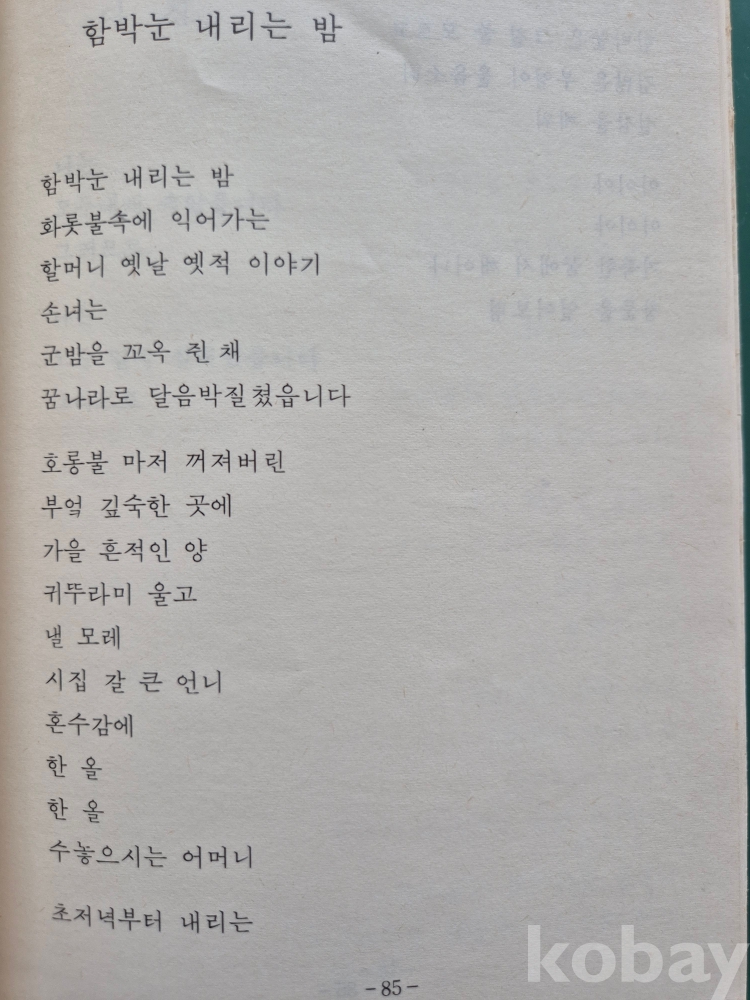 함박눈 내리는 밤
함박눈 내리는 밤
화롯불속에 익어가는
할머니 옛날 옛적 이야기
손녀는
군밤을 꼬옥 쥔 채
꿈나라로 달음박질쳤읍니다
호롱불 마저 꺼져버린
부엌 깊숙한 곳에
가을 흔적인 양
귀뚜라미 울고
낼 모레
시집 갈 큰 언니
혼수감에
한 올
한 올
수놓으시는 어머니
초저녁부터 내리는
-85-
kobay